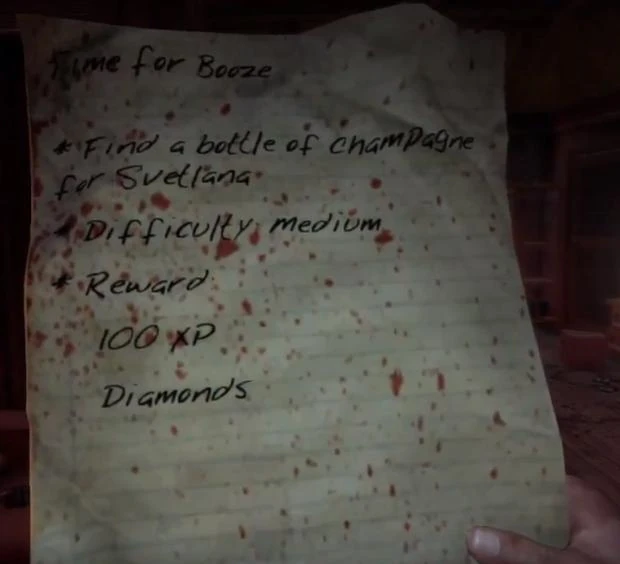 Time for Booze
* Find a bottle of champagne
for Svetlana
* Difficulty: medium
* Reward
100 XP
Diamonds